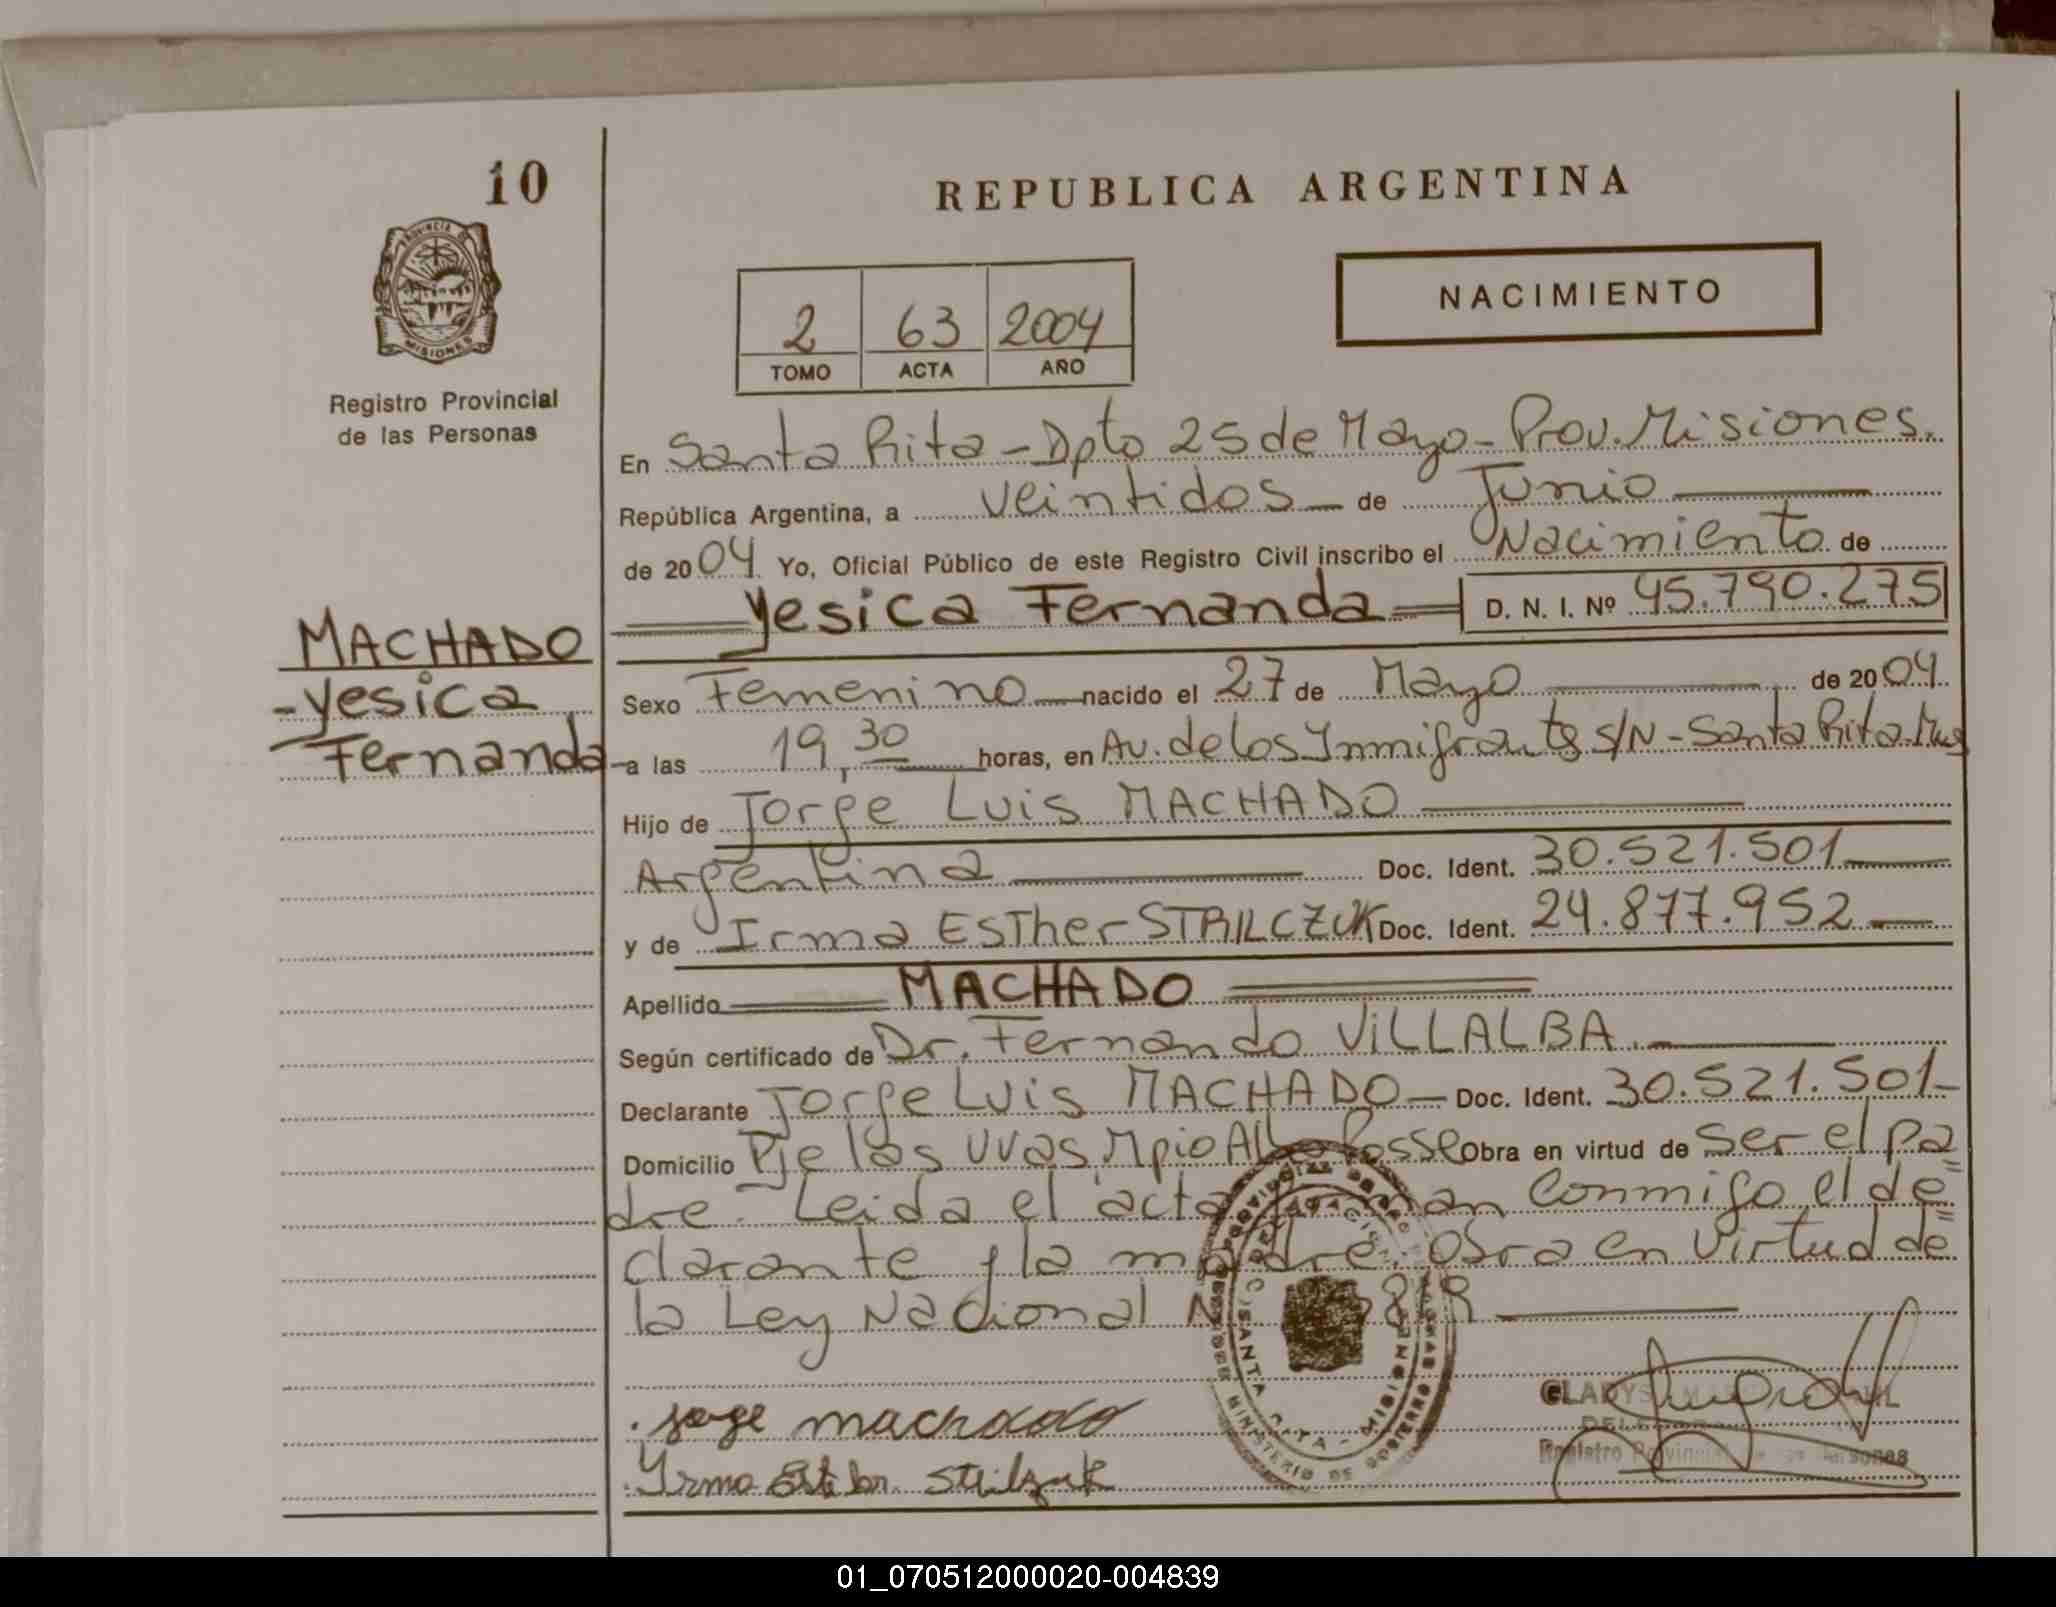 10
REPUBLICA ARGENTINA
PROVINCIA DE
MISIONES
NACIMIENTO
2 63 2004
TOMO ACTA AÑO
Registro Provincial
de las Personas
En Santa Rita - Dpto 25 de Mayo - Prov. Misiones.
República Argentina, a veintidos de Junio
de 2004. Yo, Oficial Público de este Registro Civil inscribo el Nacimiento de
Yesica Fernanda D. N. I. Nº 45.790.275
MACHADO
- Yesica
Fernanda
Sexo Femenino nacido el 27 de Mayo de 2004
a las 19,30 horas, en Av. de los Inmigrantes S/N - Santa Rita. Mnes
Hijo de Jorge Luis MACHADO
Argentina Doc. Ident. 30.521.501
y de Irma Esther STRILCZUK Doc. Ident. 24.877.952
Apellido MACHADO
Según certificado de Dr. Fernando ViLLALBA.
Declarante Jorge Luis MACHADO - Doc. Ident. 30.521.501-
Domicilio Pje las Uvas, Mpio Alba Posse Obra en virtud de Ser el pa=
dre. - Leida el acta conmigo el de=
clarante y la madre. Obra en virtud de
la Ley Nacional
Jorge machado
Yrma Esther Strilczuk
MINISTERIO DE GOBIERNO
SANTA RITA - MISIONES
GLADYS
Registro Provincial de las Personas
01_070512000020-004839